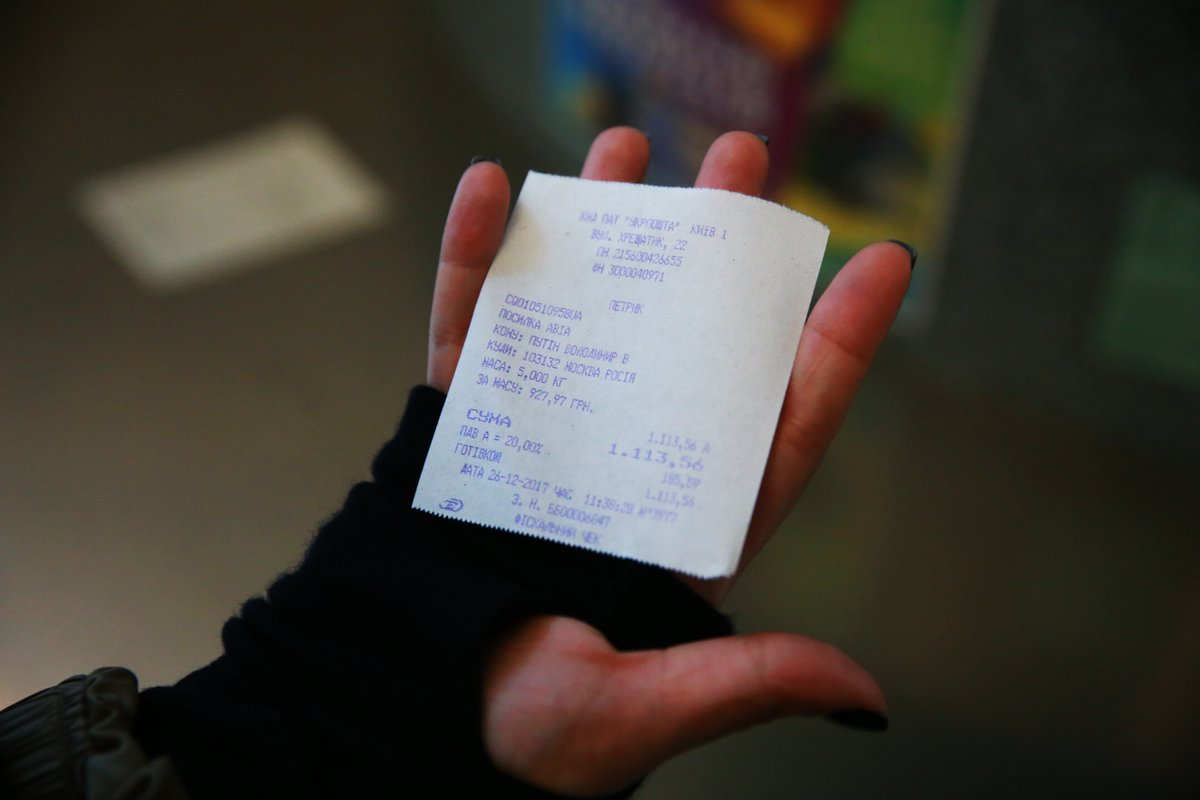 КНД ПАТ "УКРПОШТА" КИЇВ 1
ВУЛ. ХРЕЩАТИК, 22
ПН 215600426655
ФН 3000040971
CQ010510958UA ПЕТРИК
ПОСИЛКА АВІА
КОМУ: ПУТІН ВОЛОДИМИР В
КУДИ: 103132 МОСКВА РОСІЯ
МАСА: 5,000 КГ
ЗА МАСУ: 927,97 ГРН.
1.113,56 А
СУМА 1.113,56
ПДВ А = 20,00% 185,59
ГОТІВКОЮ 1.113,56
ДАТА 26-12-2017 ЧАС 11:38:28 №3977
З. Н. ББ00006047
ФІСКАЛЬНИЙ ЧЕК